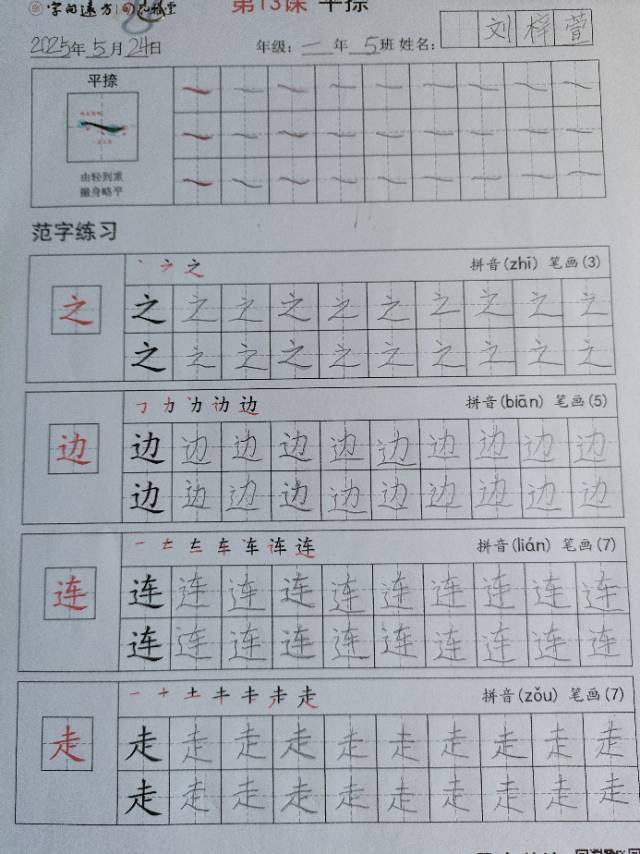 字的远方
第13课 平捺
2025年5月24日 年级：一年5班 姓名：刘梓萱
平捺
由轻到重
撇身略平
范字练习
丶 之 之 拼音(zhī) 笔画(3)
之 之 之 之 之 之 之 之 之 之 之
之 之 之 之 之 之 之 之 之 之
㇆ 力 边 边 边 拼音(biān) 笔画(5)
边 边 边 边 边 边 边 边 边 边 边
边 边 边 边 边 边 边 边 边 边
一 车 连 拼音(lián) 笔画(7)
连 连 连 连 连 连 连 连 连 连 连
连 连 连 连 连 连 连 连 连 连
一 十 土 走 走 拼音(zǒu) 笔画(7)
走 走 走 走 走 走 走 走 走 走 走
走 走 走 走 走 走 走 走 走 走